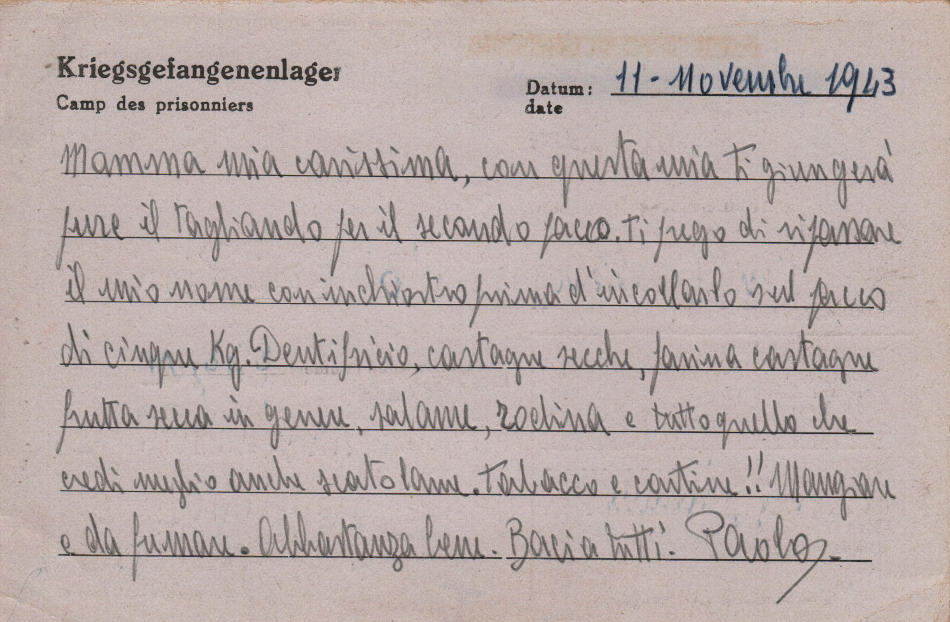 Kriegsgefangenenlager
Camp des prisonniers
Datum: 11 - Novembre 1943
date
Mamma mia carissima, con questa mia ti giungerà
pure il tagliando per il secondo pacco. Ti prego di ripassare
il mio nome con inchiostro prima d'incollarlo sul pacco
di cinque Kg. Dentifricio, castagne secche, farina castagne
frutta secca in genere, salame, e tutto quello che
credi meglio anche scatolame. Tabacco e cartine!! Mangiare
e da fumare. Abbastanza bene. Bacia tutti. Paolo